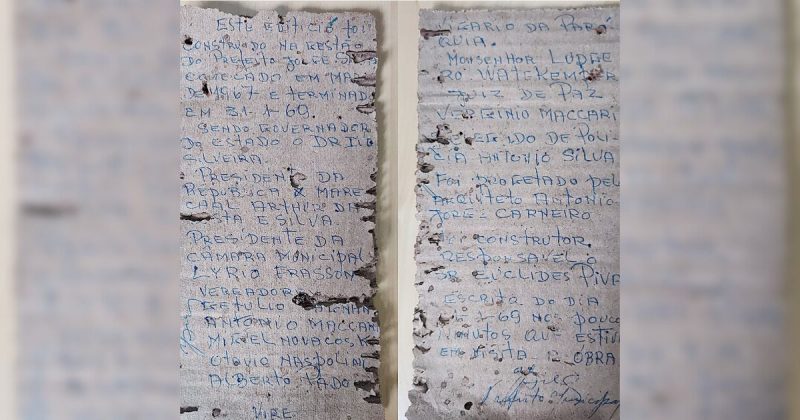 ESTE EDIFICIO FOI
CONSTRUIDO NA GESTÃO
DO PREFEITO JORGE
COMEÇADO EM
DE 1967 E TERMINAD
EM 31-1-69.
SENDO GOVERNADOR
DO ESTADO O DR
SILVEIRA.
PRESIDENTE DA
REPUBLICA MARE
CHAL ARTHUR DA
STA E SILVA
PRESIDENTE DA
CÂMARA MUNICIPAL
LYRIO FRASSON
VEREADOR
GETULIO
ANTONIO MACCARI
MIGUEL NOVACOSK
OTAVIO NASPOLINI
ALBERTO TADO
VIRE
VIGARIO DA PARÓ
QUIA.
MONSENHOR LUDGE
RO WATEKEMPER
JUIZ DE PAZ
VERGINIO MACCARI
DE POLI
CIA ANTONIO SILVA
FOI PROGETADO PEL
ARQUITETO ANTONIO
CARNEIRO
CONSTRUTOR.
RESPONSAVEL O
SR EUCLIDES PIVA
ESCRITA DO DIA
69 NOS POUCO
MINUTOS QUE ESTIV
EM VISITA A OBRA